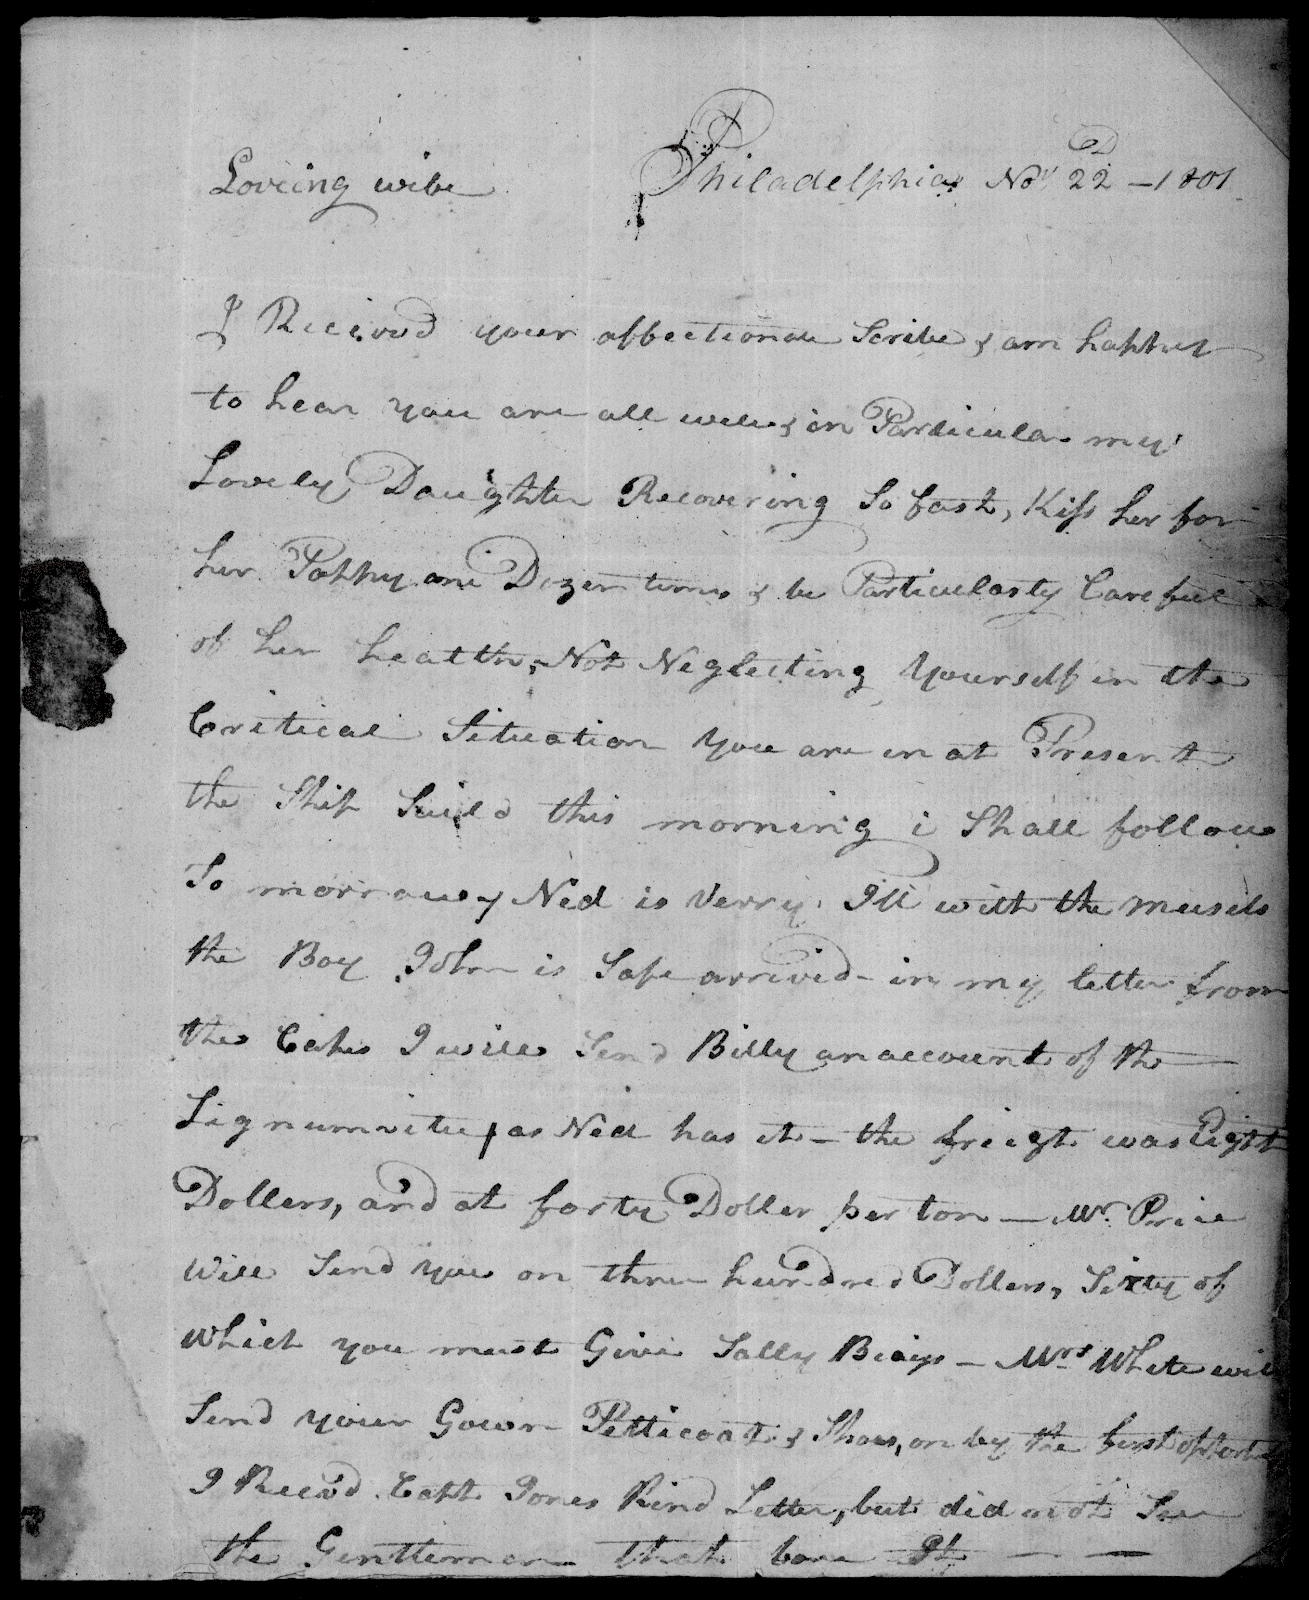 Loveing wife
Philadelphia Nov 22D - 1801
I Reeived your affectionate Scribe & am happy
to hear you are all well & in Particular my
Lovely Daughter Recovering So fast, Kiss her for
her Pappy one Dozen times & be Particularly Careful
of her health, Not Neglecting Yourself in the
Critical Situation You are in at Present
the Ship Saild this morning i Shall follow
To morrow, Ned is Verry Ill with the Meisels
the Boy John is Safe arrived - in my letter from
the Capes I will Send Billy an account of the
Lignumvitu as Ned has it - the freigt was Eight
Dollers, and at forty Doller per ton - Mr Price
Will Send you on three hundred Dollers, Sixty of
Which you must Give Sally Biays - Mrs White will
Send your Gown Petticoat & Shoes, on by the first
I Reced Capt Jones Kind Letter, but did not See
the Gentleman that bore It